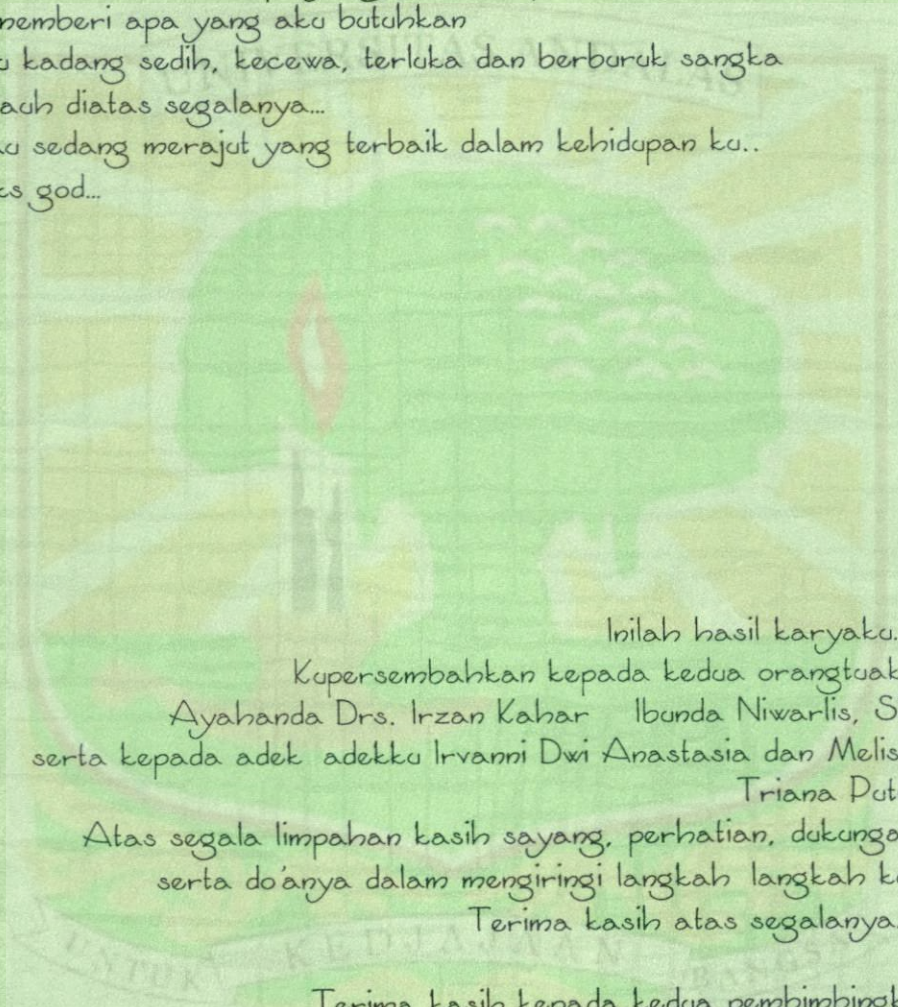 memberi apa yang aku butuhkan
kadang sedih, kecewa, terluka dan berburuk sangka
diatas segalanya...
sedang merajut yang terbaik dalam kehidupan ku..
god...
Inilah hasil karyaku.
Kupersembahkan kepada kedua
Ayahanda Drs. Irzan Kahar Ibunda Niwarlis, S
serta kepada adek adekku Irvanni Dwi Anastasia dan
Triana
Atas segala limpahan kasih sayang, perhatian,
serta do'anya dalam mengiringi langkah langkah
Terima kasih atas segalanya.
UNTUK KEDJAJAAN BANGSA
Terima kasih kepada kedua